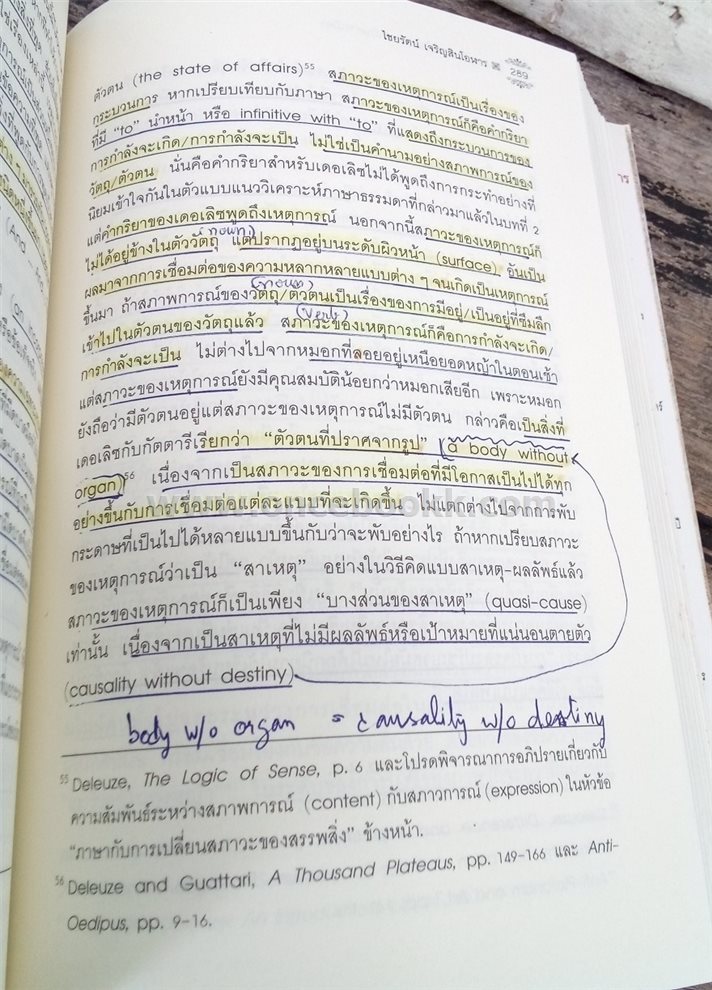 ไชยรัตน์ เจริญสินโอฬาร
289
ตัวตน (the state of affairs)55 สภาวะของเหตุการณ์เป็นเรื่องของ
กระบวนการ หากเปรียบเทียบกับภาษา สภาวะของเหตุการณ์ก็คือคำกริยา
ที่มี "to" นำหน้า หรือ infinitive with "to" ที่แสดงถึงกระบวนการของ
การกำลังจะเกิด/การกำลังจะเป็น ไม่ใช่เป็นคำนามอย่างสภาพการณ์ของ
วัตถุ/ตัวตน นั่นคือคำกริยาสำหรับเดอเลิซไม่ได้พูดถึงการกระทำอย่างที่
นิยมเข้าใจกันในตัวแบบแนววิเคราะห์ภาษาธรรมดาที่กล่าวมาแล้วในบทที่ 2
แต่คำกริยาของเดอเลิซพูดถึงเหตุการณ์ นอกจากนี้สภาวะของเหตุการณ์ก็
(noun)
ไม่ได้อยู่ข้างในตัววัตถุ แต่ปรากฏอยู่บนระดับผิวหน้า (surface) อันเป็น
ผลมาจากการเชื่อมต่อของความหลากหลายแบบต่าง ๆ จนเกิดเป็นเหตุการณ์
(noun)
ขึ้นมา ถ้าสภาพการณ์ของวัตถุ/ตัวตนเป็นเรื่องของการมีอยู่/เป็นอยู่ที่ซึมลึก
(verb)
เข้าไปในตัวตนของวัตถุแล้ว สภาวะของเหตุการณ์ก็คือการกำลังจะเกิด/
การกำลังจะเป็น ไม่ต่างไปจากหมอกที่ลอยอยู่เหนือยอดหญ้าในตอนเช้า
แต่สภาวะของเหตุการณ์ยังมีคุณสมบัติน้อยกว่าหมอกเสียอีก เพราะหมอก
ยังถือว่ามีตัวตนอยู่แต่สภาวะของเหตุการณ์ไม่มีตัวตน กล่าวคือเป็นสิ่งที่
เดอเลิซกับกัตตารีเรียกว่า "ตัวตนที่ปราศจากรูป" (a body without
organ)56 เนื่องจากเป็นสภาวะของการเชื่อมต่อที่มีโอกาสเป็นไปได้ทุก
อย่างขึ้นกับการเชื่อมต่อแต่ละแบบที่จะเกิดขึ้น ไม่แตกต่างไปจากการพับ
กระดาษที่เป็นไปได้หลายแบบขึ้นกับว่าจะพับอย่างไร ถ้าหากเปรียบสภาวะ
ของเหตุการณ์ว่าเป็น "สาเหตุ" อย่างในวิธีคิดแบบสาเหตุ-ผลลัพธ์แล้ว
สภาวะของเหตุการณ์ก็เป็นเพียง "บางส่วนของสาเหตุ" (quasi-cause)
เท่านั้น เนื่องจากเป็นสาเหตุที่ไม่มีผลลัพธ์หรือเป้าหมายที่แน่นอนตายตัว
(causality without destiny)
body w/o organ = causality w/o destiny
55 Deleuze, The Logic of Sense, p. 6 และโปรดพิจารณาการอภิปรายเกี่ยวกับ
ความสัมพันธ์ระหว่างสภาพการณ์ (content) กับสภาวการณ์ (expression) ในหัวข้อ
"ภาษากับการเปลี่ยนสภาวะของสรรพสิ่ง" ข้างหน้า.
56 Deleuze and Guattari, A Thousand Plateaus, pp. 149-166 และ Anti-
Oedipus, pp. 9-16.